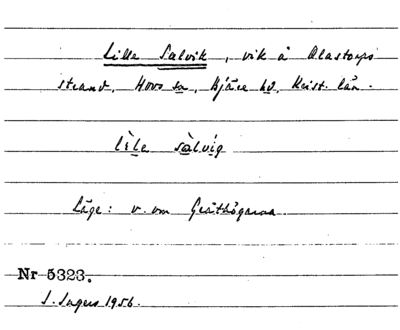 Lille Salvik, vik å Olastorps
strand, Hovs sn, Bjäre hd, Krist. län.
lìle sàlvíg
Läge: v. om Gråthögarna.
Nr 5323.
S. Ingers 1956.